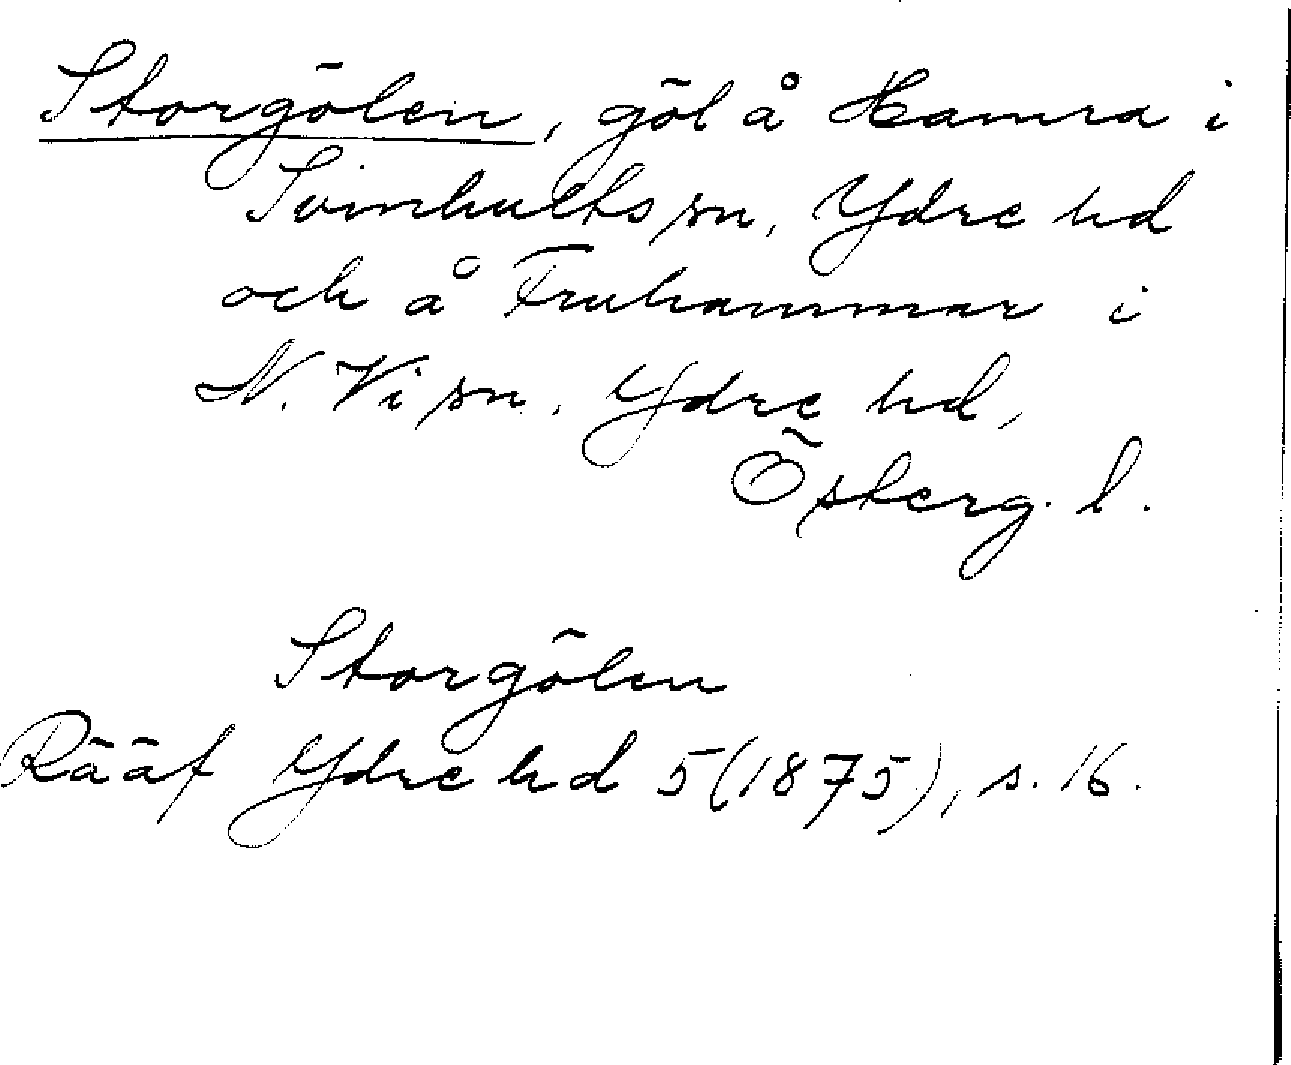 Storgölen, göl å Hamra i
Svinhults sn, Ydre hd
och å Fruhammar i
N. Vi sn, Ydre hd,
Österg. l.
Storgölen
Rääf Ydre hd 5 (1875), s. 16.